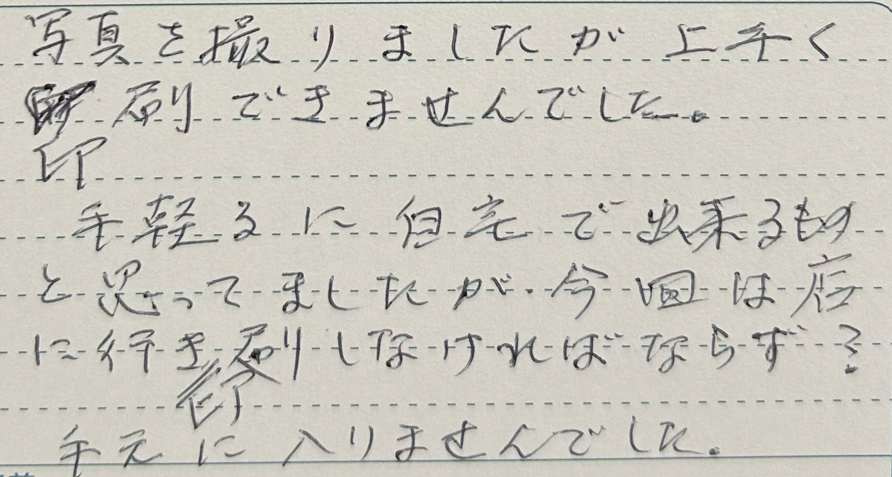 写真を撮りましたが上手く
刷できませんでした。
印
手軽るに自宅で出来るもの
と思ってましたが、今回は店
に行き刷しなければならず?
印
手元に入りませんでした。